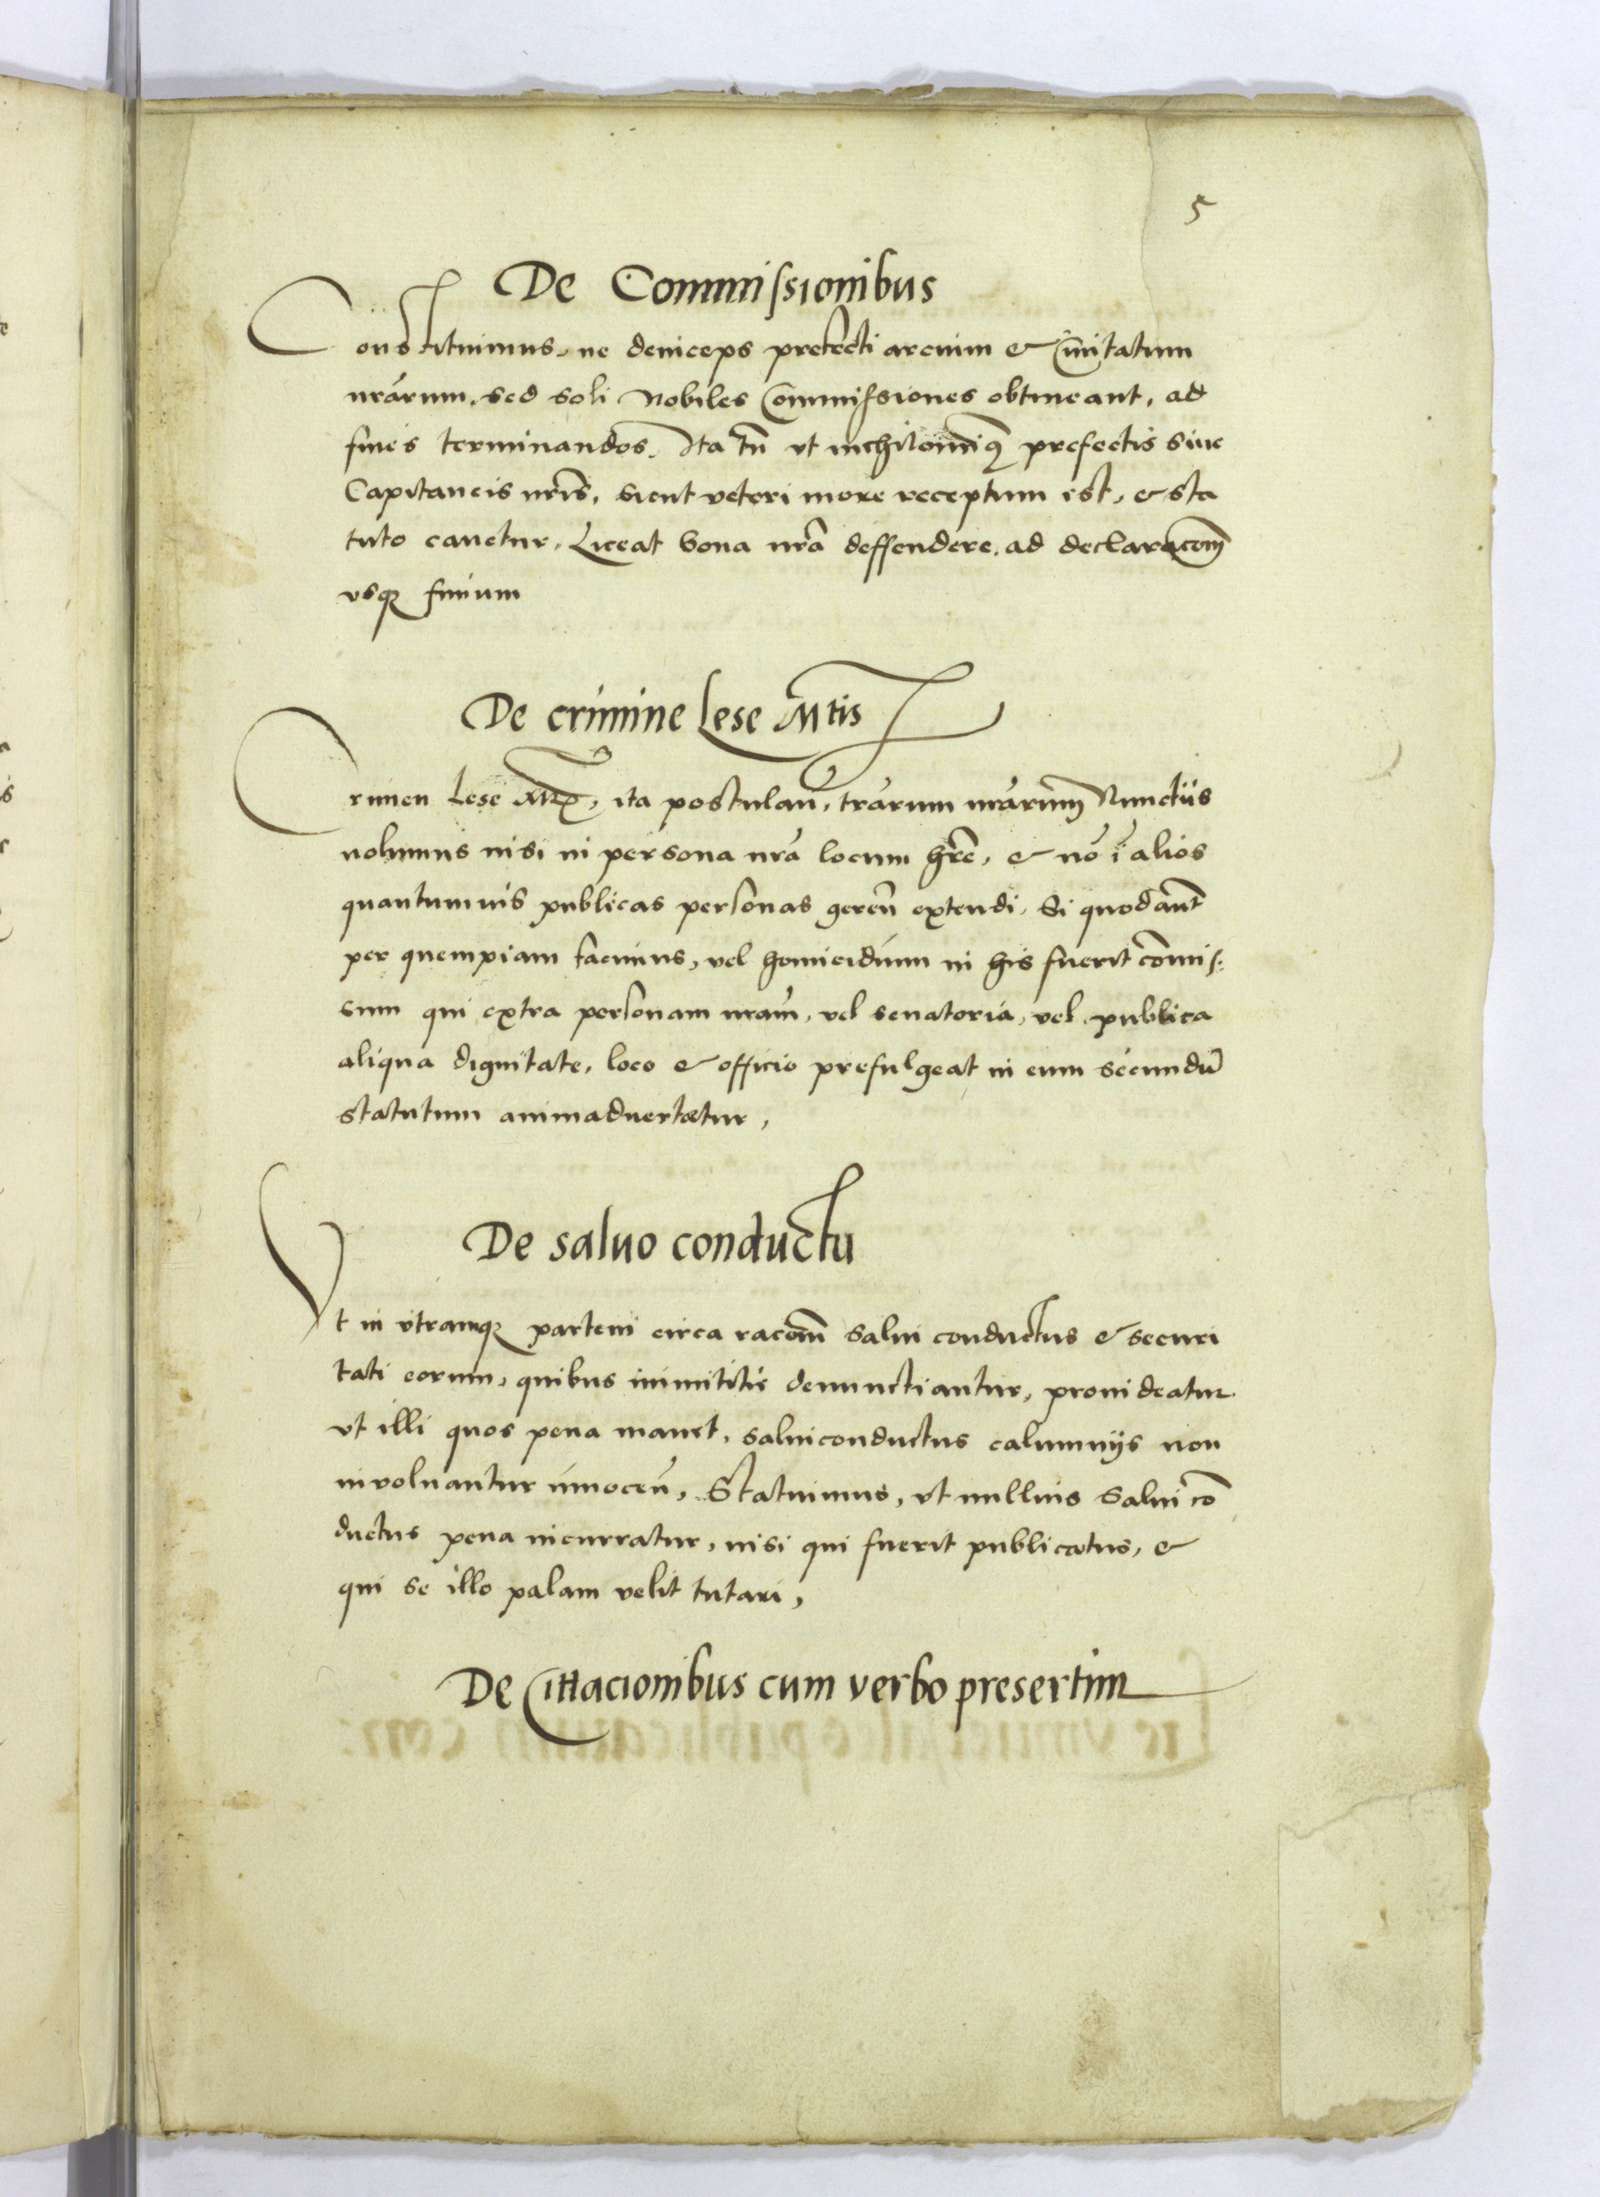 5
De Commissionibus
Constituimus, ne deinceps prefecti arcium & Civitatum
nrarum, sed soli Nobiles Commissiones obtineant, ad
fines terminandos. Ita tn̄ vt nichilominꝯ prefectis siue
Capitaneis nrīs, sicut veteri more receptum est, & sta
tuto cauetur, Liceat bona nrā deffendere, ad declaracoēm
vsqꝫ finium
De crimine Lese Mtis
Crimen Lese, ita postulan̄, trārum nrārum Nunctiis
nolumus nisi in persona nrā locum hrē, & nō ī alios
quantumuis publicas personas geren̄ extendi, Si quod aūt
per quempiam facinus, vel homicidium in his fuerit cōmis:
sum qui extra personam nrām, vel senatoria, vel publica
aliqua dignitate, loco & officio prefulgeat in eum secundū
statutum animaduertetur,
De saluo conductu
Vt in vtramqꝫ partem circa racoēm salui conductus & securi
tati eorum, quibus inimicitie denunctiantur, prouideatur
vt illi quos pena manet, saluiconductus calumnijs non
inuoluantur innocen̄, Statuimus, vt nullius salui cō
ductus pena incurratur, nisi qui fuerit publicatus, &
qui se illo palam velit tutari,
De Cittacionibus cum verbo presertim